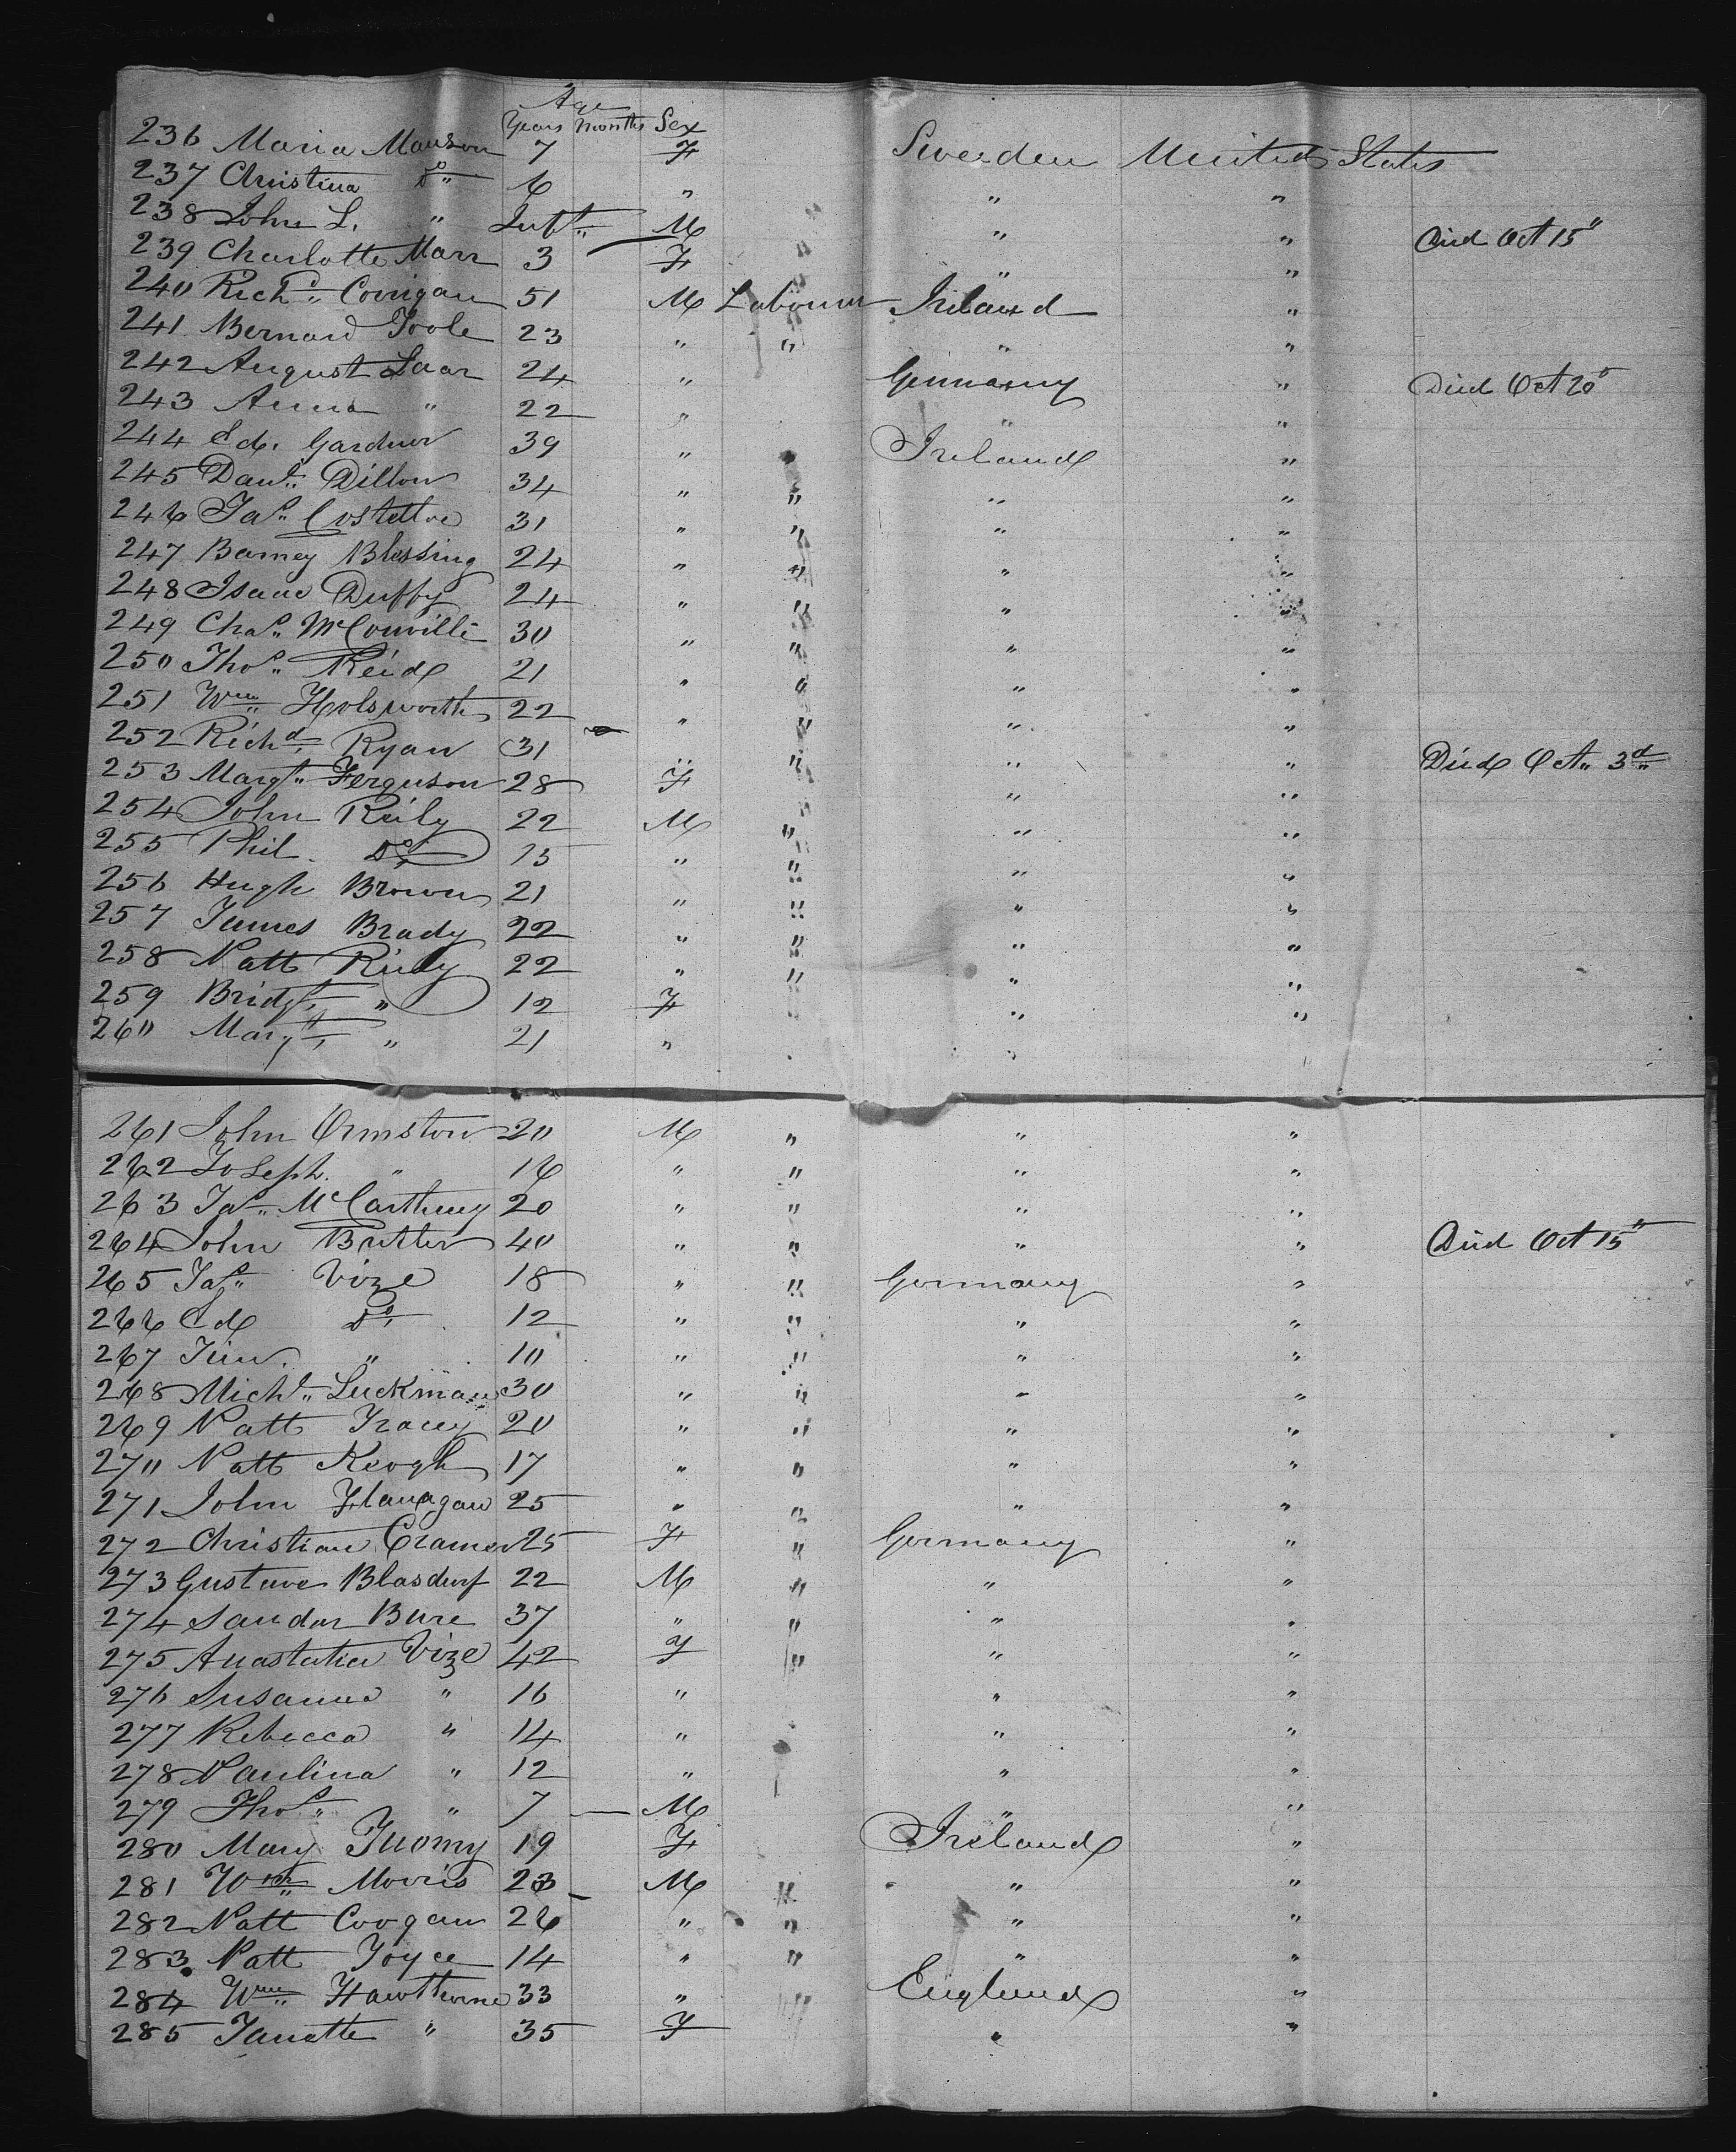 Age
Years Months Sex
236 Maria Manson 7 F Sweeden United States
237 Christina Do 6 " " "
238 John L. " Inft M " " Died Oct 15"
239 Charlotte Marr 3 F " " "
240 Richd Corrigan 51 M Labourer Ireland "
241 Bernard Toole 23 " " " "
242 August Laar 24 " Germany " Died Oct 20"
243 Anna " 22 " " "
244 Ed. Gardner 39 " " Ireland "
245 Danl. Dillon 34 " " " "
246 Jas. Costelloe 31 " " " "
247 Barney Blessing 24 " " " "
248 Isaac Duffy 24 " " " "
249 Chas. McConville 30 " " " "
250 Thos. Reid 21 " " " "
251 Wm Holsworth 22 " " " "
252 Richd. Ryan 31 " " " " Died Oct. 3d
253 Margt. Ferguson 28 F " "
254 John Reily 22 M " " "
255 Phil. Do 15 " " " "
256 Hugh Brown 21 " " " "
257 James Brady 22 " " " "
258 Patt Reily 22 " " " "
259 Bridgt. " 12 F " " "
260 Margt. " 21 " "
261 John Ormston 20 M " " "
262 Joseph. " 16 " " " "
263 Jas. McCartheny 20 " " " "
264 John Butler 40 " " " " Died Oct 15"
265 Jas. Vize 18 " " Germany "
266 Ed Do 12 " " " "
267 Tim. " 10 " " " "
268 Michl. Luckman 30 " " " "
269 Patt Tracey 20 " " " "
270 Patt Keogh 17 " " " "
271 John Flanagan 25 " " " "
272 Christian Cramer 25 F " Germany "
273 Gustave Blasdurf 22 M " " "
274 Sandor Bure 37 " " " "
275 Anastatia Vize 42 F " " "
276 Susanna " 16 " " "
277 Rebecca " 14 " " "
278 Paulina " 12 " " "
279 Thos. " 7 — M " "
280 Mary Tuomy 19 F Ireland "
281 Wm Morris 23 M " " "
282 Patt Coogan 26 " " " "
283 Patt Joyce 14 " " " "
284 Wm Hawthorne 33 " " England "
285 Janatte " 35 F " "